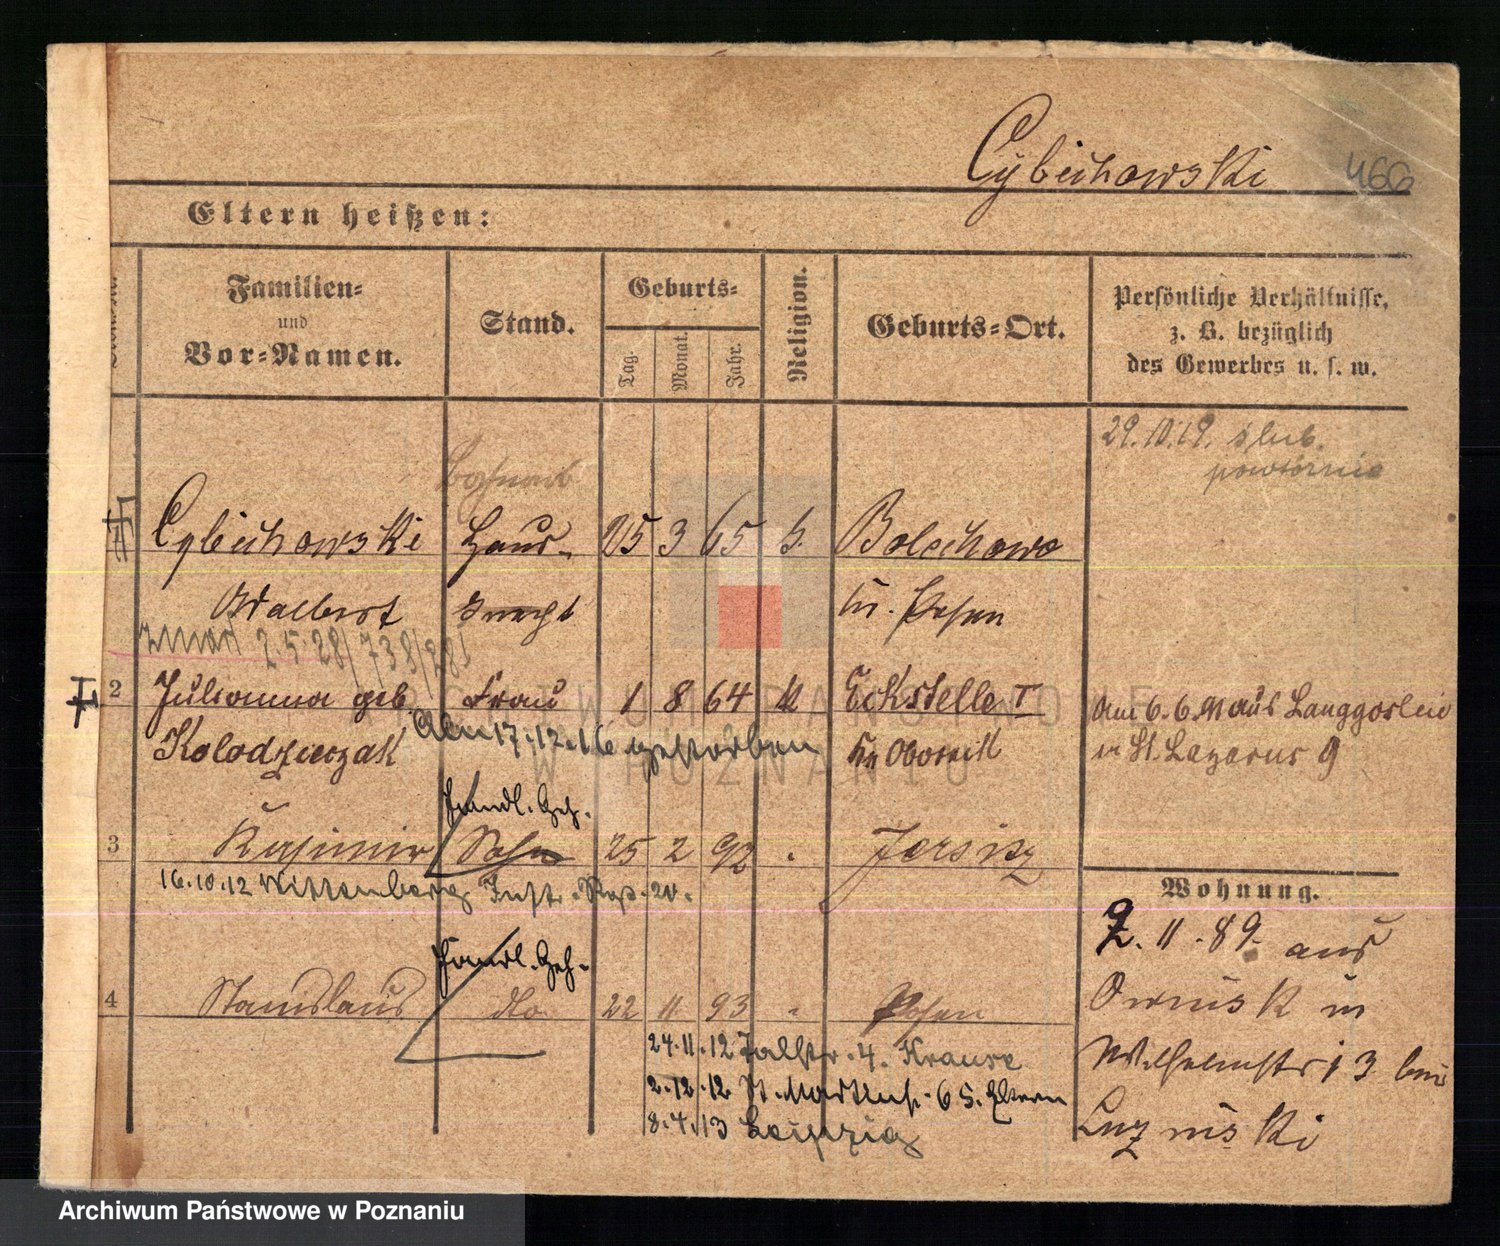 Cybichowski 466
Eltern heißen:
Familien=
und
Vor=Namen.
Stand.
Geburts=
Tag.
Monat.
Jahr.
Religion.
Geburts=Ort.
Persönliche Verhältnisse,
z. B. bezüglich
des Gewerbes u. s. w.
29.10.19. ślub.
powtórnie
Cybichowski Haus- 25 3 65 k. Bolechowo
Adalbert knecht Kr. Posen
zmarł 2.5.28/738/281
2 Julianna geb. Frau 1 8 64 k Eckstelle I
Kolodzieczak Kr Obornik
Am 17.12.16 gestorben
Am 6.6. aus Langgoslin
in St. Lazarus 9
Handl. Geh.
3 Kasimir Sohn 25 2 92 " Jersitz
16.10.12 Wittenberg Inft. Reg. 20.
Wohnung.
2.11.89. aus
Owinsk in
Wilhelmstr 13 bei
Luzinski
Handl. Geh.
4 Stanislaus dto 22 11 93 " Posen
24.11.12 4. Krause
2.12.12 St. Martinstr. 65. Eltern
8.4.13 Leipzig
ARCHIWUM PAŃSTWOWE
W POZNANIU
Archiwum Państwowe w Poznaniu